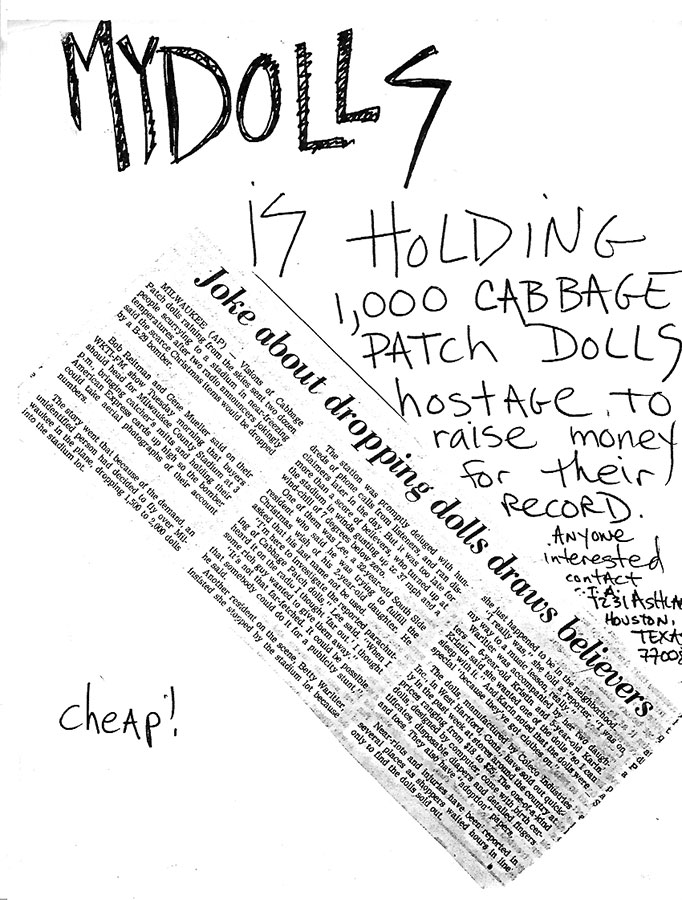 MYDOLLS
IS HOLDING
1,000 CABBAGE
PATCH DOLLS
HOSTAGE. TO
raise money
for their
RECORD.
ANYONE
interested
contact
C.I.A.
1231 ASHLA
HOUSTON,
TEXAS
77008
CHEAP!
Joke about dropping dolls draws believers
MILWAUKEE (AP) — Visions of Cabbage
Patch dolls raining from the skies sent two dozen
people scurrying to a stadium in near-freezing
temperatures after two radio announcers jokingly
said the scarce Christmas items would be dropped
by a B-29 bomber.
Bob Reitman and Gene Mueller said on their
WKTI-FM show Tuesday morning that buyers
should head for Milwaukee County Stadium at 3
p.m., bringing catcher's mitts and holding their
American Express cards up high so the bomber
could take aerial photographs of their account
numbers.
The story went that because of the demand, an
unidentified person had decided to fly over Mil-
waukee in the plane, dropping 1,500 to 2,000 dolls
into the stadium lot.
The station was promptly deluged with hun-
dreds of phone calls from listeners, and ran dis-
claimers later in the day. But it was too late for
more than a score of believers, who turned up at
the stadium in winds gusting up to 37 mph and a
wind-chill of 7 degrees below zero.
One of them was Lee, a 32-year-old South Side
resident who said he was trying to fulfill the
Christmas wish of his 2-year-old daughter. He
asked that his last name not be used.
"I'm here to investigate the reported parachut-
ing of Cabbage Patch dolls," Lee said. "When I
heard it on the radio I thought, 'far out.' I thought
some rich guy wanted to give them away.
"It's not that far-fetched. It could be possible
that somebody could do it for a publicity stunt,"
he said.
Another resident on the scene, Betty Warliher,
insisted she stopped by the stadium lot because
she just happened to be in the neighborhood.
"I really was," she told a reporter. "I was on
my way to a music lesson, really."
Warliher was accompanied by her two daugh-
ters — 6-year-old Kristin and 5-year-old Karin.
Kristin said she wanted one of the dolls "so I can
sleep with it." And Karin noted that the dolls were
special "because they've got clothes on."
The dolls, manufactured by Coleco Industries
Inc. in West Hartford, Conn., have sold out quick-
ly in the past week at stores around the country at
prices ranging from $18 to $25. The one-of-a-kind
dolls, designed by computer, come with birth cer-
tificates, disposable diapers and detailed fingers
and toes. They also have "adoption" papers.
Near-riots and injuries have been reported in
several places as shoppers waited hours in line
only to find the dolls sold out.